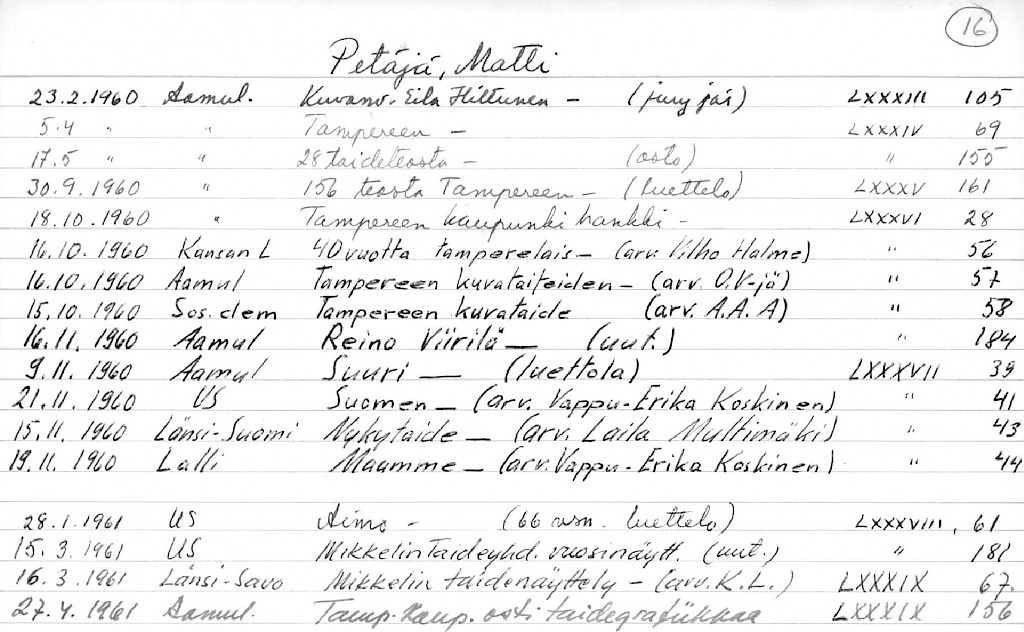 16
Petäjä, Matti
23.2.1960 Aamul. Kuvanv. Eila Hiltunen - (jury jäs) LXXXIII 105
5.4 " " Tampereen - LXXXIV 69
17.5 " " 28 taideteosta - (osto) " 155
30.9.1960 " 156 teosta Tampereen - (luettelo) LXXXV 161
18.10.1960 " Tampereen kaupunki hankki - LXXXVI 28
16.10.1960 Kansan L 40 vuotta tamperelais - (arv. Vilho Halme) " 56
16.10.1960 Aamul Tampereen kuvataiteiden - (arv. O.V-jä) " 57
15.10.1960 Sos.dem Tampereen kuvataide (arv. A.A.A) " 58
16.11.1960 Aamul Reino Viirilä — (uut.) " 184
9.11.1960 Aamul Suuri — (luettola) LXXXVII 39
21.11.1960 US Suomen - (arv. Vappu-Erika Koskinen) " 41
15.11.1960 Länsi-Suomi Nykytaide - (arv. Laila Multimäki) " 43
19.11.1960 Lalli Maamme - (arv. Vappu-Erika Koskinen) " 44
28.1.1961 US Aimo - (66 luettelo) LXXXVIII, 61
15.3.1961 US Mikkelin Taideyhd. vuosinäytt. (uut.) " 181
16.3.1961 Länsi-Savo Mikkelin taidenäyttely - (arv. K.L.) LXXXIX 67.
27.4.1961 Aamul. Tamp. kaup. osti taidegrafiikkaa LXXXIX 156